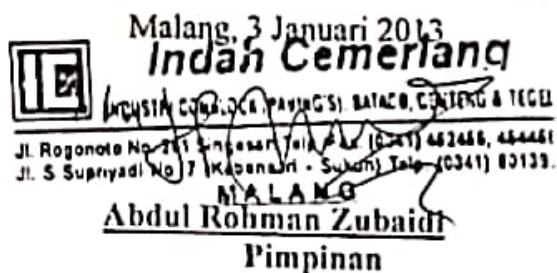 Malang, 3 Januari 2013
Indah Cemerlang
INDUSTRI CONBLOCK (PAVING'S). BATACO, GENTENG & TEGEL
Jl. Rogonoto No Singosari Telp (0341) 462466,
Jl. S Supriyadi No 7 (Kebonsari - Sukun) Telp (0341)
MALANG
Abdul Rohman Zubaidi
Pimpinan